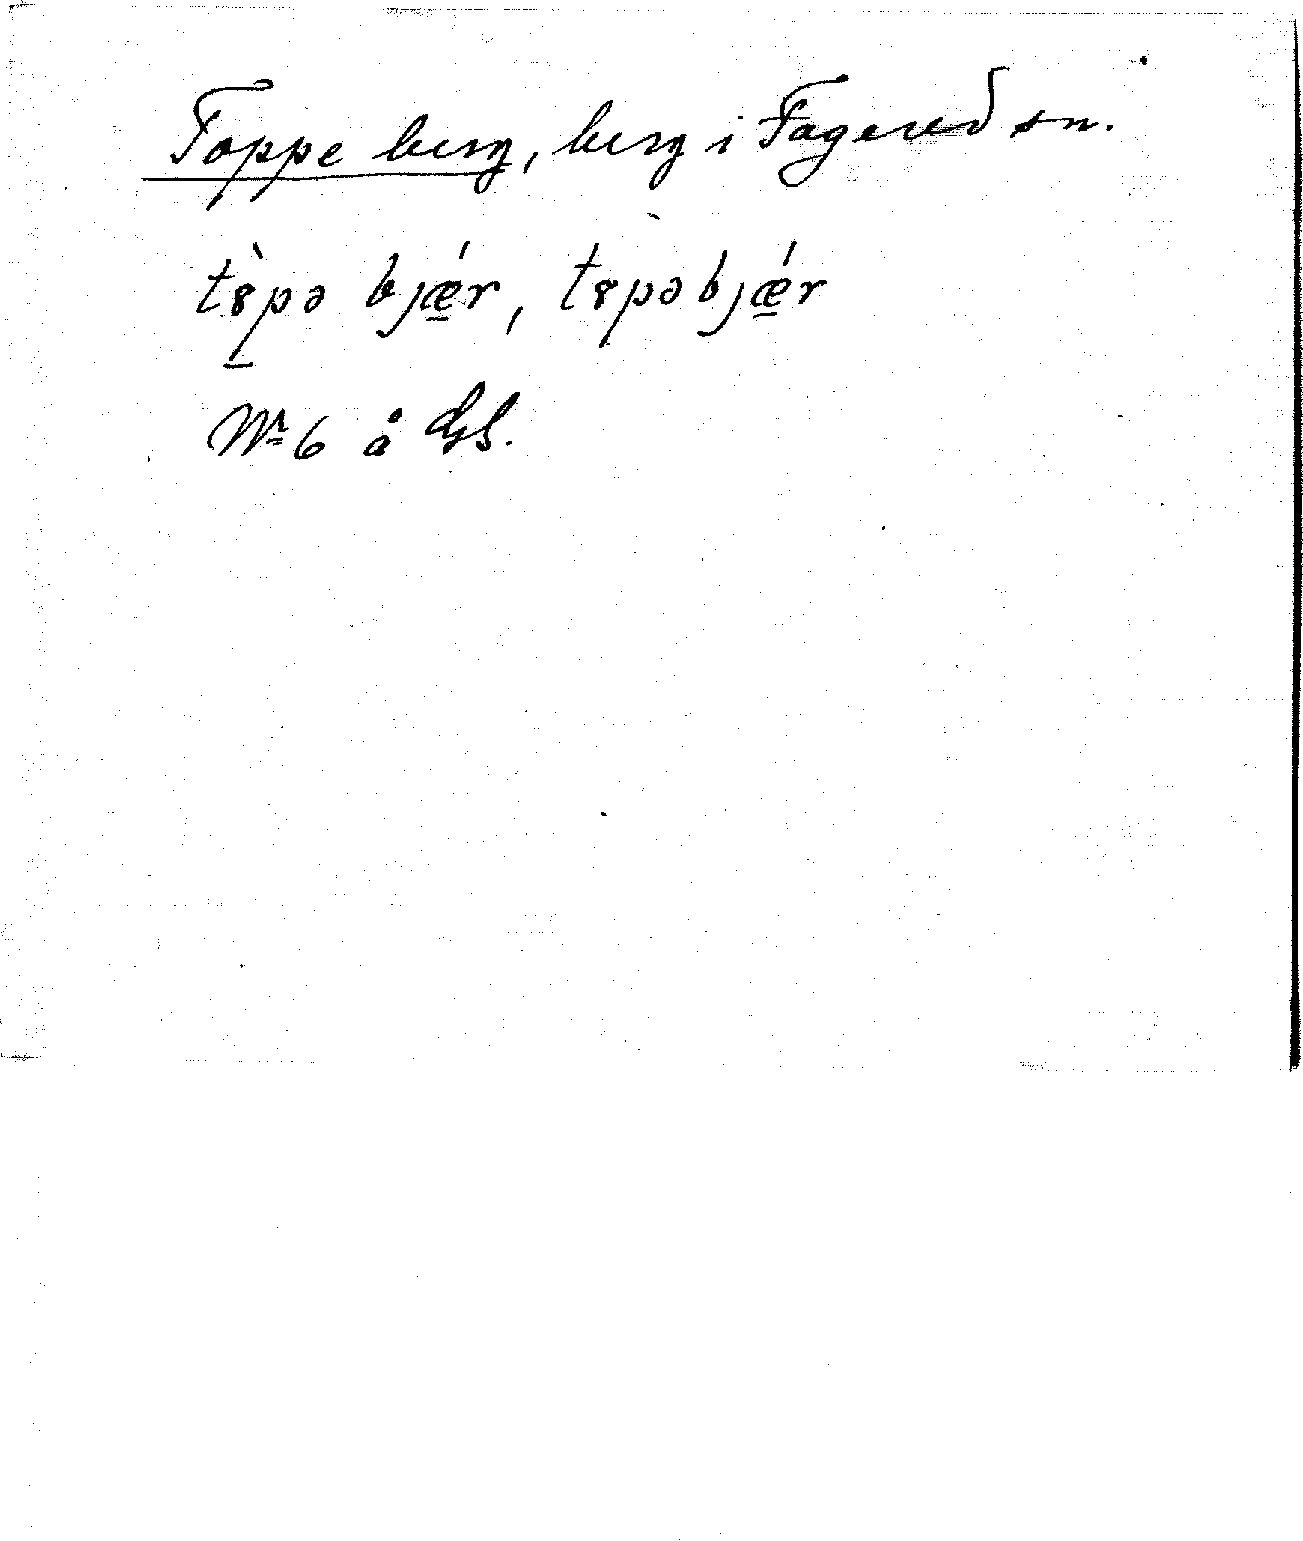 Toppe berg, berg i Fagered sn.
tɤ̀pə bjǽr, tɤpəbjǽr
Nr 6 å